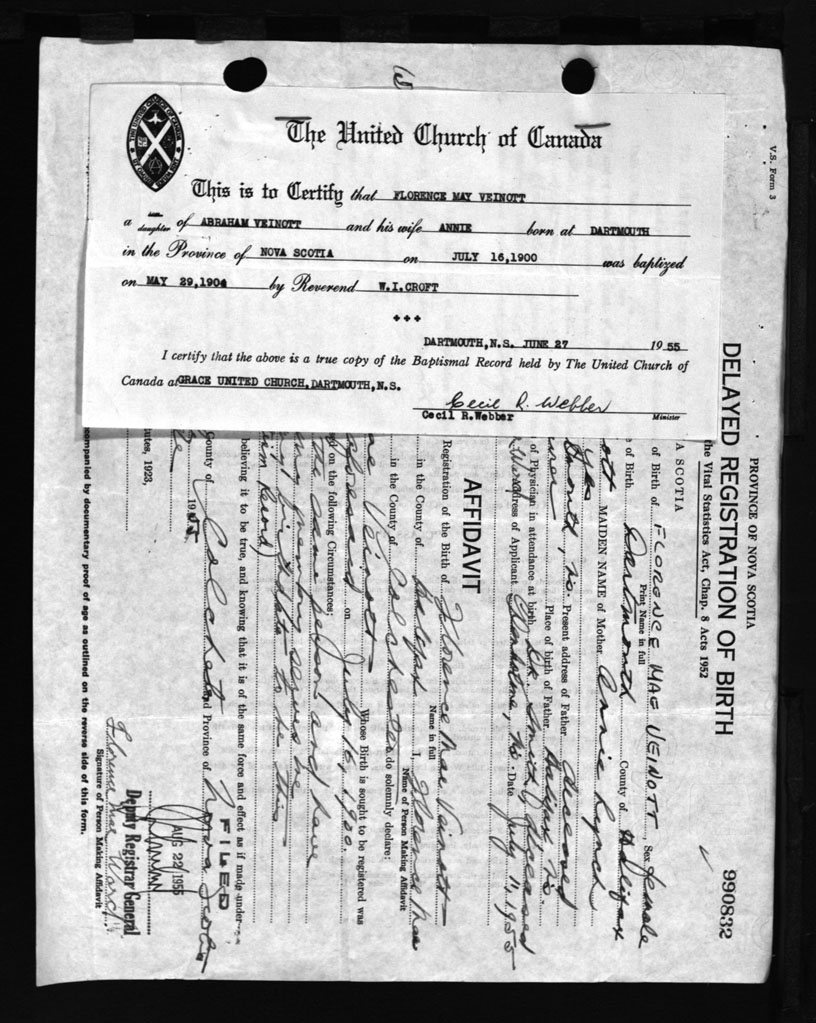 The United Church of Canada
This is to Certify that FLORENCE MAY VEINOTT
a daughter of ABRAHAM VEINOTT and his wife ANNIE born at DARTMOUTH
in the Province of NOVA SCOTIA on JULY 16,1900 was baptized
on MAY 29,1904 by Reverend W.I.CROFT
DARTMOUTH,N.S. JUNE 27 1955
I certify that the above is a true copy of the Baptismal Record held by The United Church of
Canada at GRACE UNITED CHURCH,DARTMOUTH,N.S.
Cecil R. Webber
Cecil R.Webber Minister
V.S. Form 3
PROVINCE OF NOVA SCOTIA
DELAYED REGISTRATION OF BIRTH 990832
the Vital Statistics Act, Chap. 8 Acts 1952
A SCOTIA
of Birth of FLORENCE MAE VEINOTT, Sex female
Print Name in full
of Birth. Dartmouth County of Halifax
ott MAIDEN NAME of Mother Annie Lynch
Present address of Father deceased
Place of birth of Father. Halifax
of Physician in attendance at birth. Dr. Smith, deceased
Address of Applicant Date July 11, 1955
AFFIDAVIT
Registration of the Birth of Florence Mae Veinott
Name in full
in the County of Halifax I, Florence Mae
Name of Person Making Affidavit
in the County of Colchester do solemnly declare:
Whose Birth is sought to be registered was
on July 16, 1900.
on the following Circumstances:
the same person and have
my memory serves me
birthdate to be this
believing it to be true, and knowing that it is of the same force and effect as if made under
County of Colchester and Province of Nova Scotia
FILED
AUG 22 1955
Deputy Registrar General
utes, 1923,
Florence Mae Ward
Signature of Person Making Affidavit
ccompanied by documentary proof of age as outlined on the reverse side of this form.